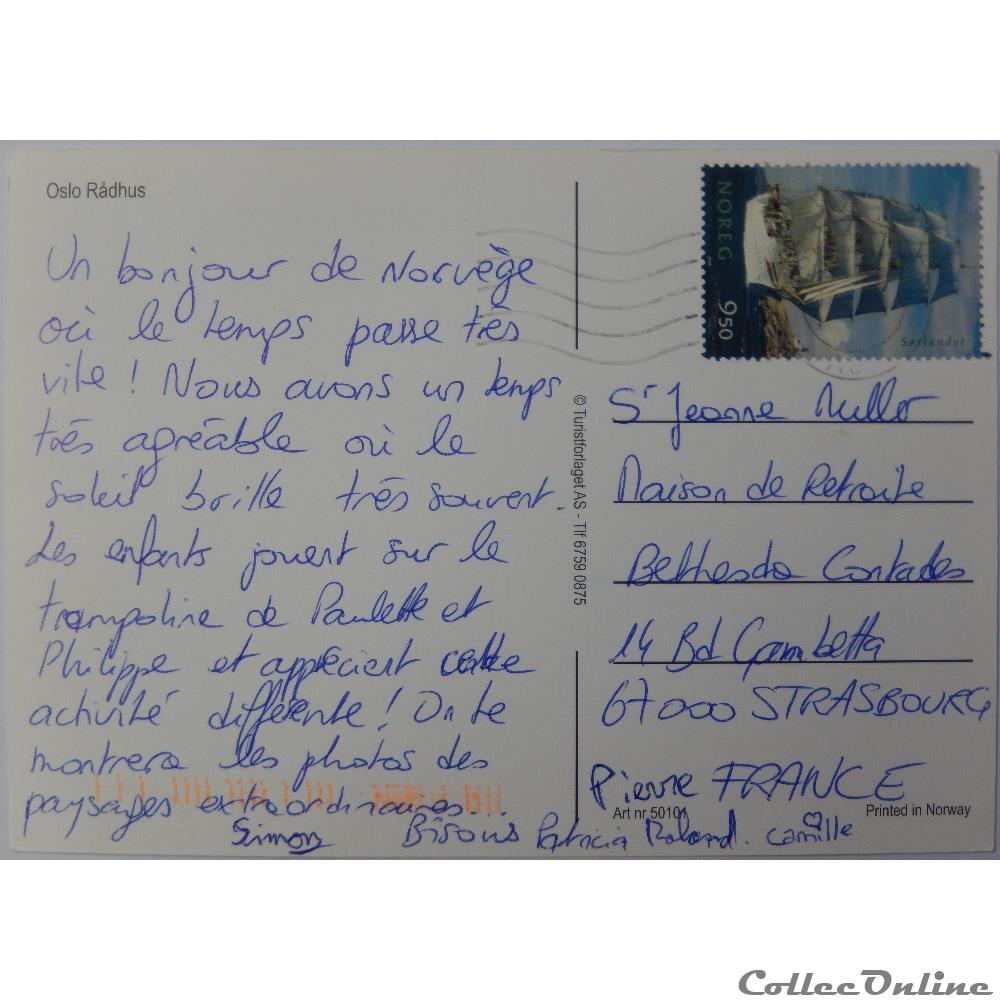 Oslo Rådhus
Un bonjour de Norvège
où le temps passe très
vite ! Nous avons un temps
très agréable où le
soleil brille très souvent.
Les enfants jouent sur le
trampoline de Paulette et
Philippe et apprécient cette
activité différente ! On te
montrera les photos des
paysages extraordinaires...
Simon Bisous Patricia Roland. Camille
Pierre
© Turistforlaget AS - Tlf 6759 0875
NOREG
950
Sørlandet
Sr Jeanne Muller
Maison de Retraite
Bethesda Contades
14 Bd Gambetta
67000 STRASBOURG
FRANCE
Art nr 50101
Printed in Norway
CollecOnline